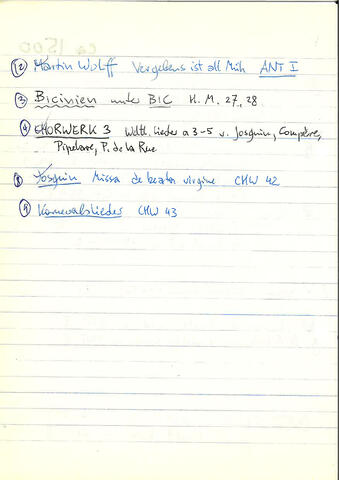 (2) Martin Wolff Vergebens ist all Müh ANT I
(3) Bicinien unter BIC H.M. 27, 28
(4) CHORWERK 3 Wltl. Lieder a 3-5 v. Josquin, Compère,
Pipelare, P. de la Rue
(8) Josquin Missa de beata virgine CHW 42
(9) Karnevalslieder CHW 43